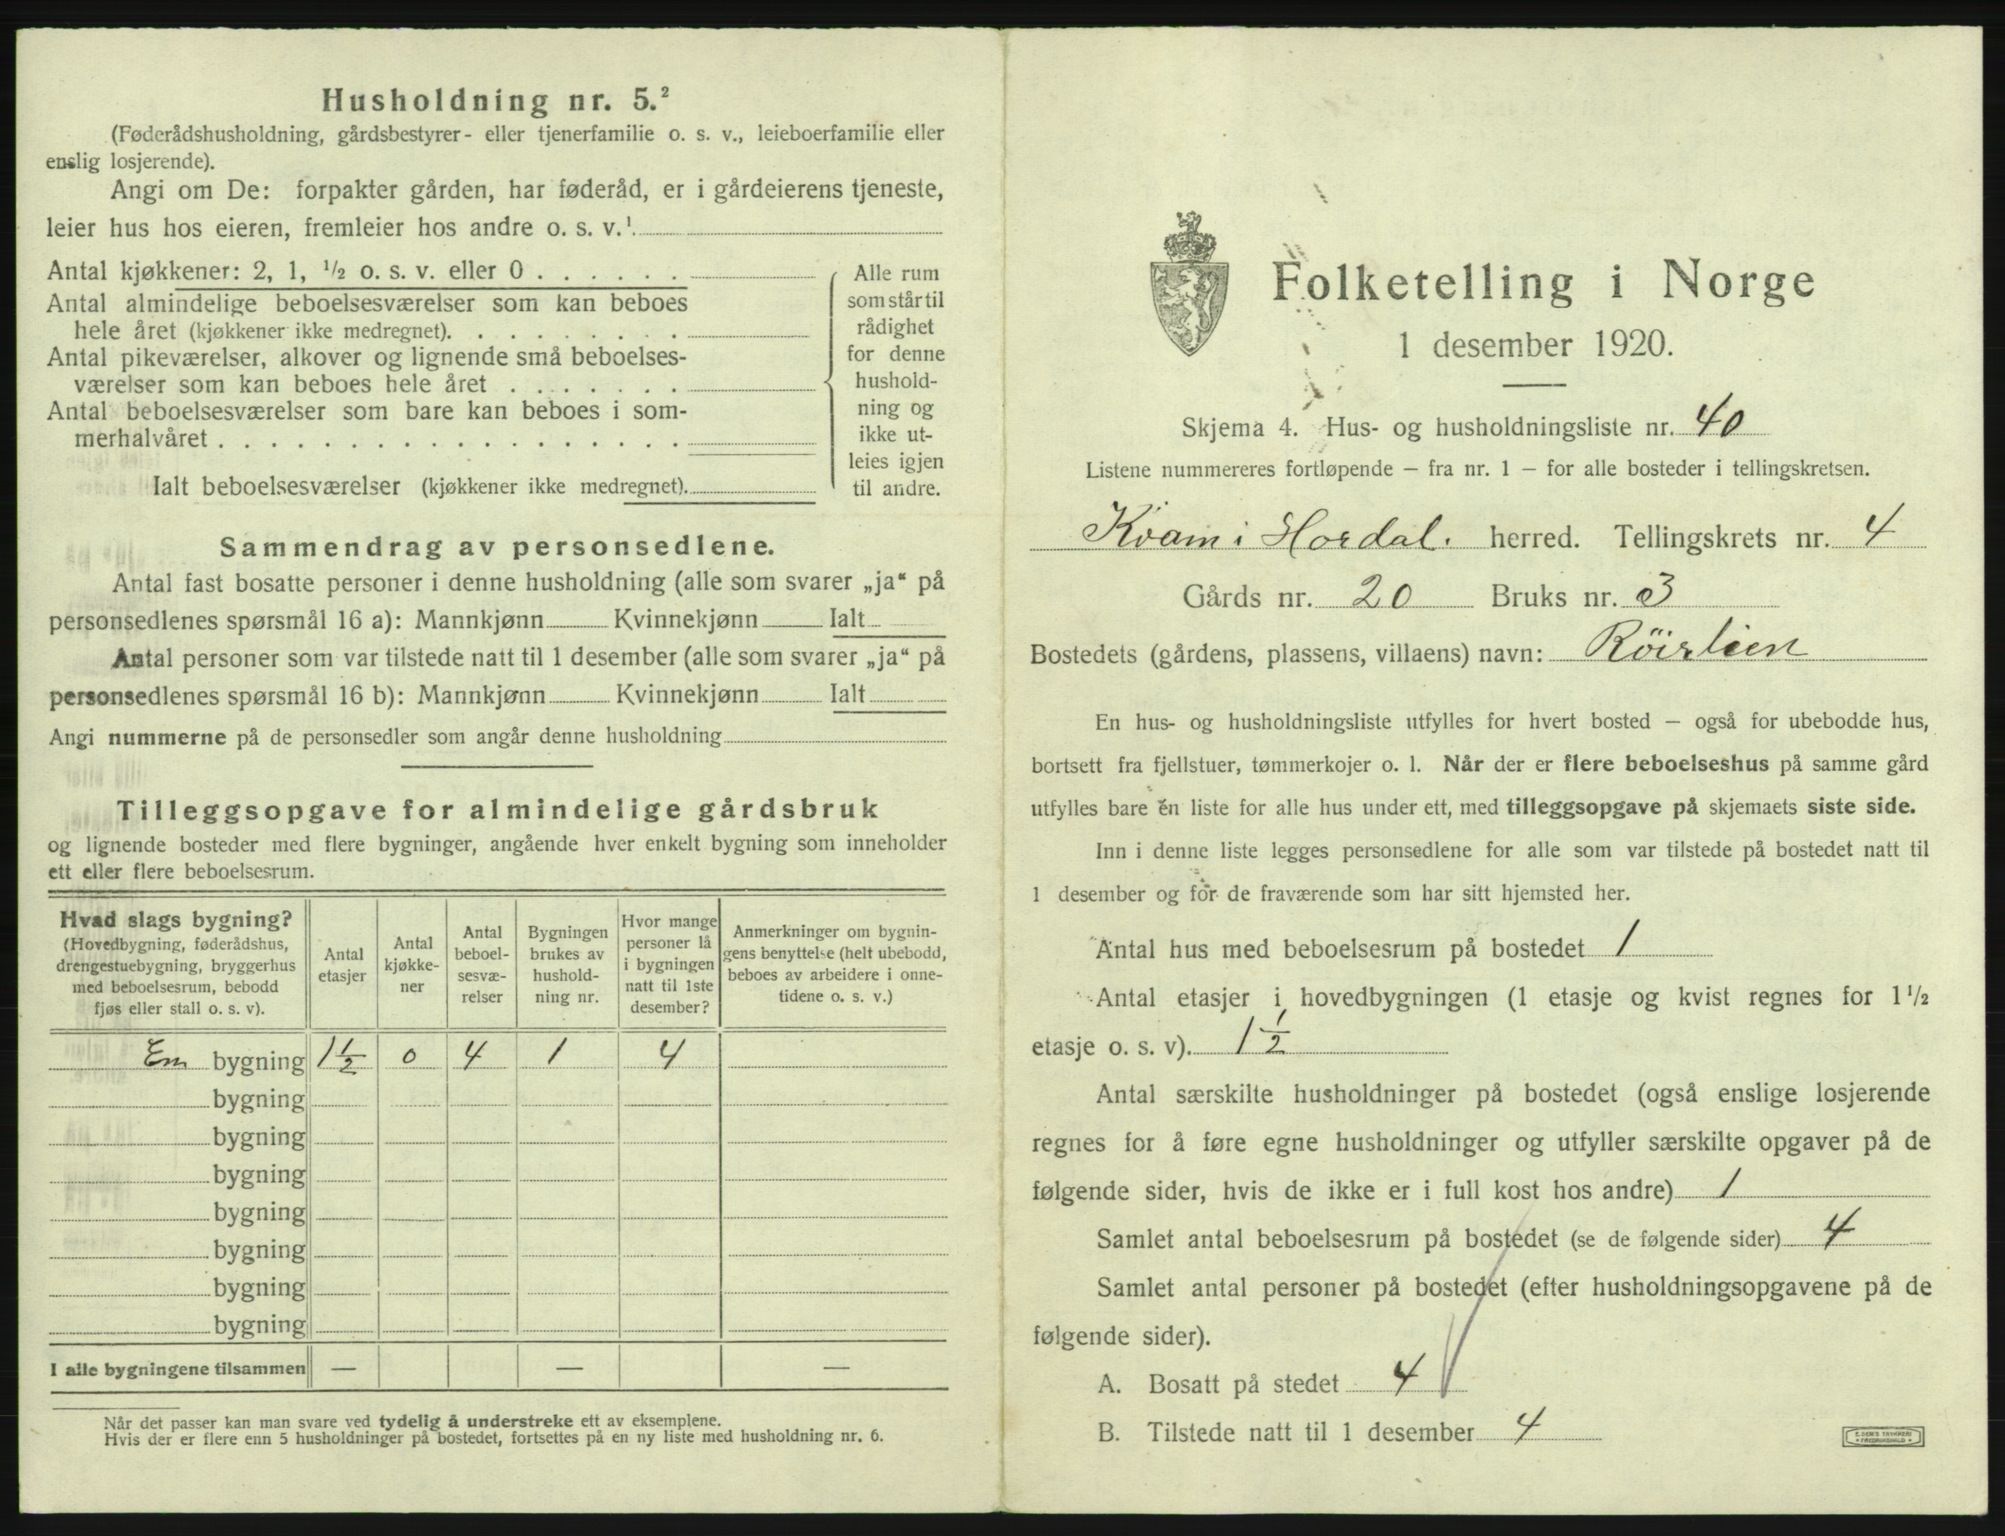 Husholdning nr. 5.²
(Føderådshusholdning, gårdsbestyrer- eller tjenerfamilie o. s. v., leieboerfamilie eller
enslig losjerende).
Angi om De: forpakter gården, har føderåd, er i gårdeierens tjeneste,
leier hus hos eieren, fremleier hos andre o. s. v.¹
Antal kjøkkener: 2, 1, ½ o. s. v. eller 0
Antal almindelige beboelsesværelser som kan beboes
hele året (kjøkkener ikke medregnet).
Antal pikeværelser, alkover og lignende små beboelses-
værelser som kan beboes hele året
Antal beboelsesværelser som bare kan beboes i som-
merhalvåret
Ialt beboelsesværelser (kjøkkener ikke medregnet).
Alle rum
som står til
rådighet
for denne
hushold-
ning og
ikke ut-
leies igjen
til andre.
Sammendrag av personsedlene.
Antal fast bosatte personer i denne husholdning (alle som svarer „ja“ på
personsedlenes spørsmål 16 a): Mannkjønn Kvinnekjønn Ialt
Antal personer som var tilstede natt til 1 desember (alle som svarer „ja“ på
personsedlenes spørsmål 16 b): Mannkjønn Kvinnekjønn Ialt
Angi nummerne på de personsedler som angår denne husholdning
Tilleggsopgave for almindelige gårdsbruk
og lignende bosteder med flere bygninger, angående hver enkelt bygning som inneholder
ett eller flere beboelsesrum.
Hvad slags bygning?
(Hovedbygning, føderådshus,
drengestuebygning, bryggerhus
med beboelsesrum, bebodd
fjøs eller stall o. s. v).
Antal
etasjer
Antal
kjøkke-
ner
Antal
beboel-
sesvæ-
relser
Bygningen
brukes av
hushold-
ning nr.
Hvor mange
personer lå
i bygningen
natt til 1ste
desember?
Anmerkninger om bygnin-
gens benyttelse (helt ubebodd,
beboes av arbeidere i onne-
tidene o. s. v.)
Em bygning 1½ 0 4 1 4
bygning
bygning
bygning
bygning
bygning
bygning
bygning
I alle bygningene tilsammen — — —
Når det passer kan man svare ved tydelig å understreke ett av eksemplene.
Hvis der er flere enn 5 husholdninger på bostedet, fortsettes på en ny liste med husholdning nr. 6.
Folketelling i Norge
1 desember 1920.
Skjema 4. Hus- og husholdningsliste nr. 40
Listene nummereres fortløpende — fra nr. 1 — for alle bosteder i tellingskretsen.
Kvam i Hordal. herred. Tellingskrets nr. 4
Gårds nr. 20 Bruks nr. 3
Bostedets (gårdens, plassens, villaens) navn: Röirlien
En hus- og husholdningsliste utfylles for hvert bosted — også for ubebodde hus,
bortsett fra fjellstuer, tømmerkojer o. l. Når der er flere beboelseshus på samme gård
utfylles bare én liste for alle hus under ett, med tilleggsopgave på skjemaets siste side.
Inn i denne liste legges personsedlene for alle som var tilstede på bostedet natt til
1 desember og for de fraværende som har sitt hjemsted her.
Antal hus med beboelsesrum på bostedet 1
Antal etasjer i hovedbygningen (1 etasje og kvist regnes for 1½
etasje o. s. v). 1½
Antal særskilte husholdninger på bostedet (også enslige losjerende
regnes for å føre egne husholdninger og utfyller særskilte opgaver på de
følgende sider, hvis de ikke er i full kost hos andre) 1
Samlet antal beboelsesrum på bostedet (se de følgende sider) 4
Samlet antal personer på bostedet (efter husholdningsopgavene på de
følgende sider).
A. Bosatt på stedet 4
B. Tilstede natt til 1 desember 4
E. SEM'S TRYKKERI
FREDRIKSHALD